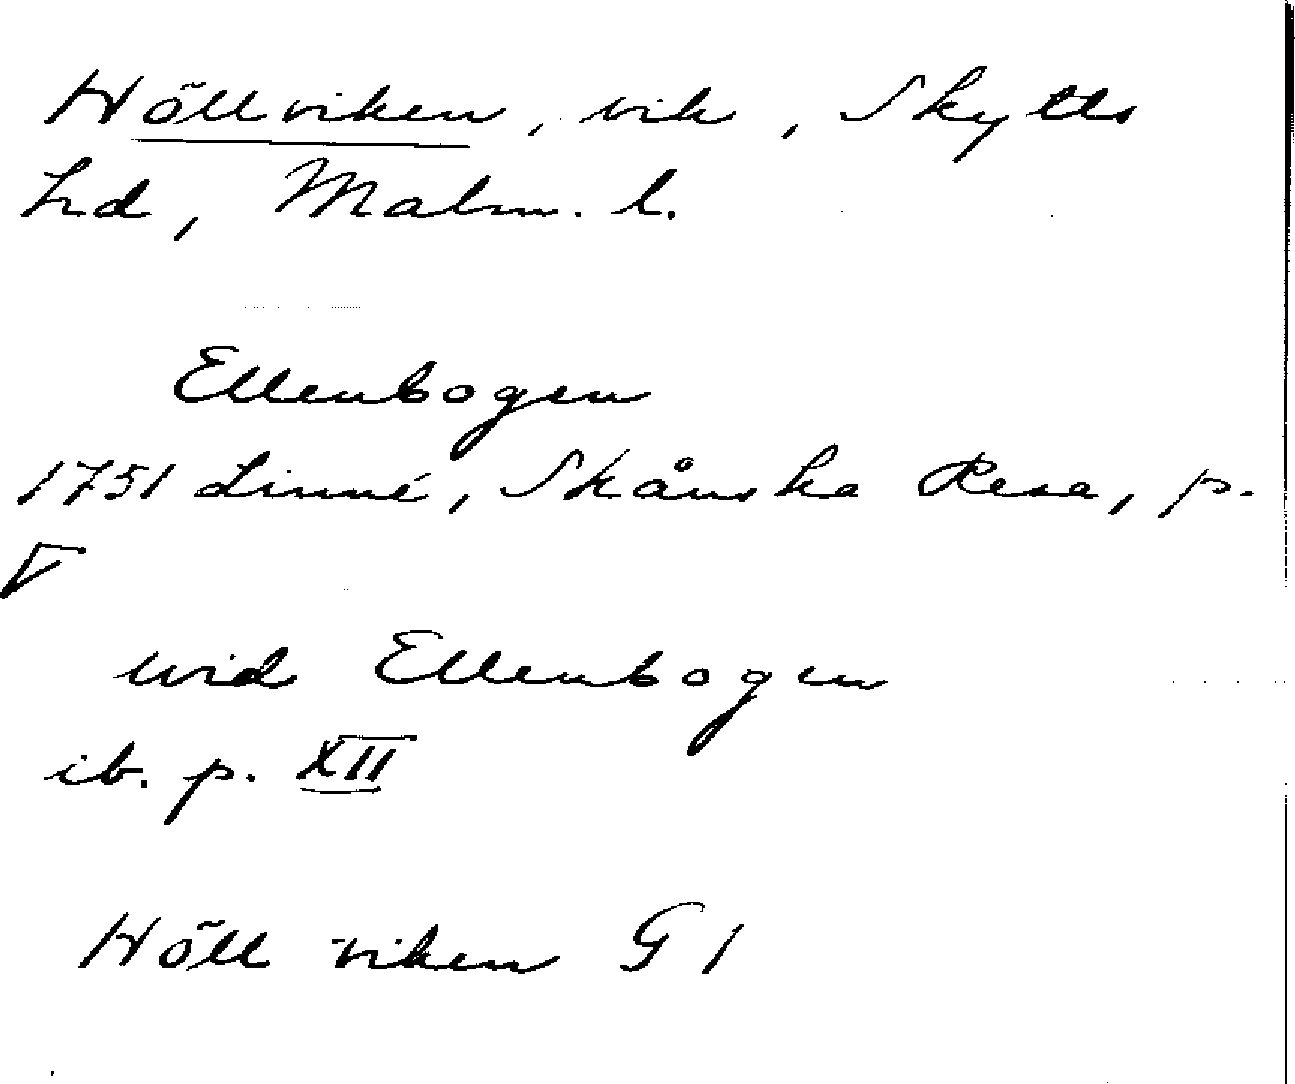 Höllviken, vik, Skytts
hd, Malm. l.
Ellenbogen
1751 Linné, Skånska Resa, p.
V
wid Ellenbogen
ib. p. XII
Höll viken G 1